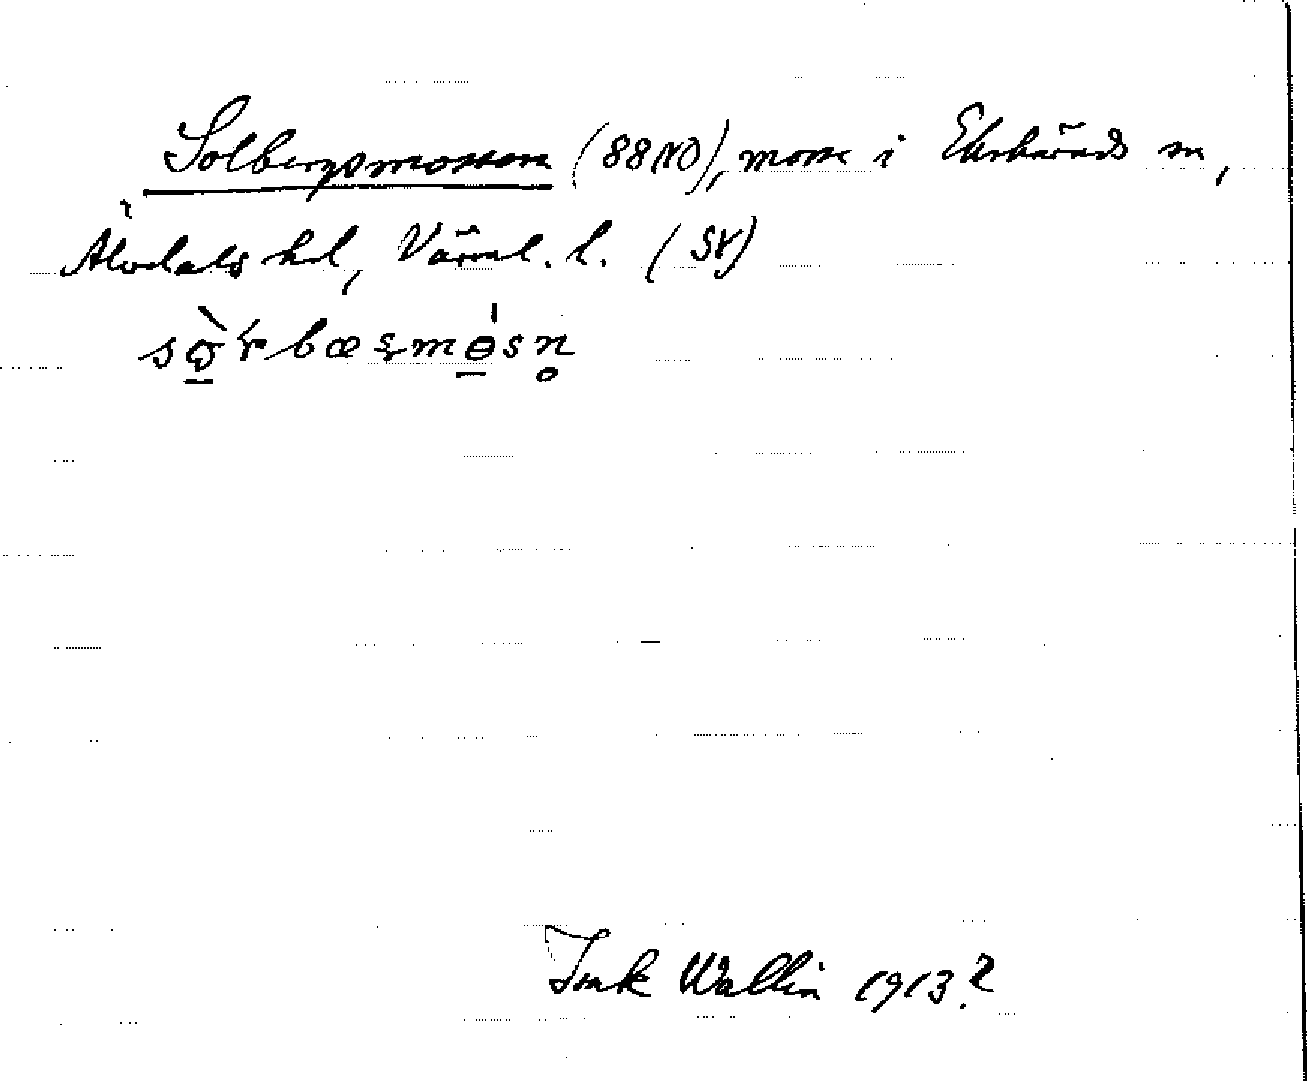 Solbergsmossen (88NO), mosse i Ekshärads sn,
Älvdals hd, Värml. l. (SV)
Wallin 1913?